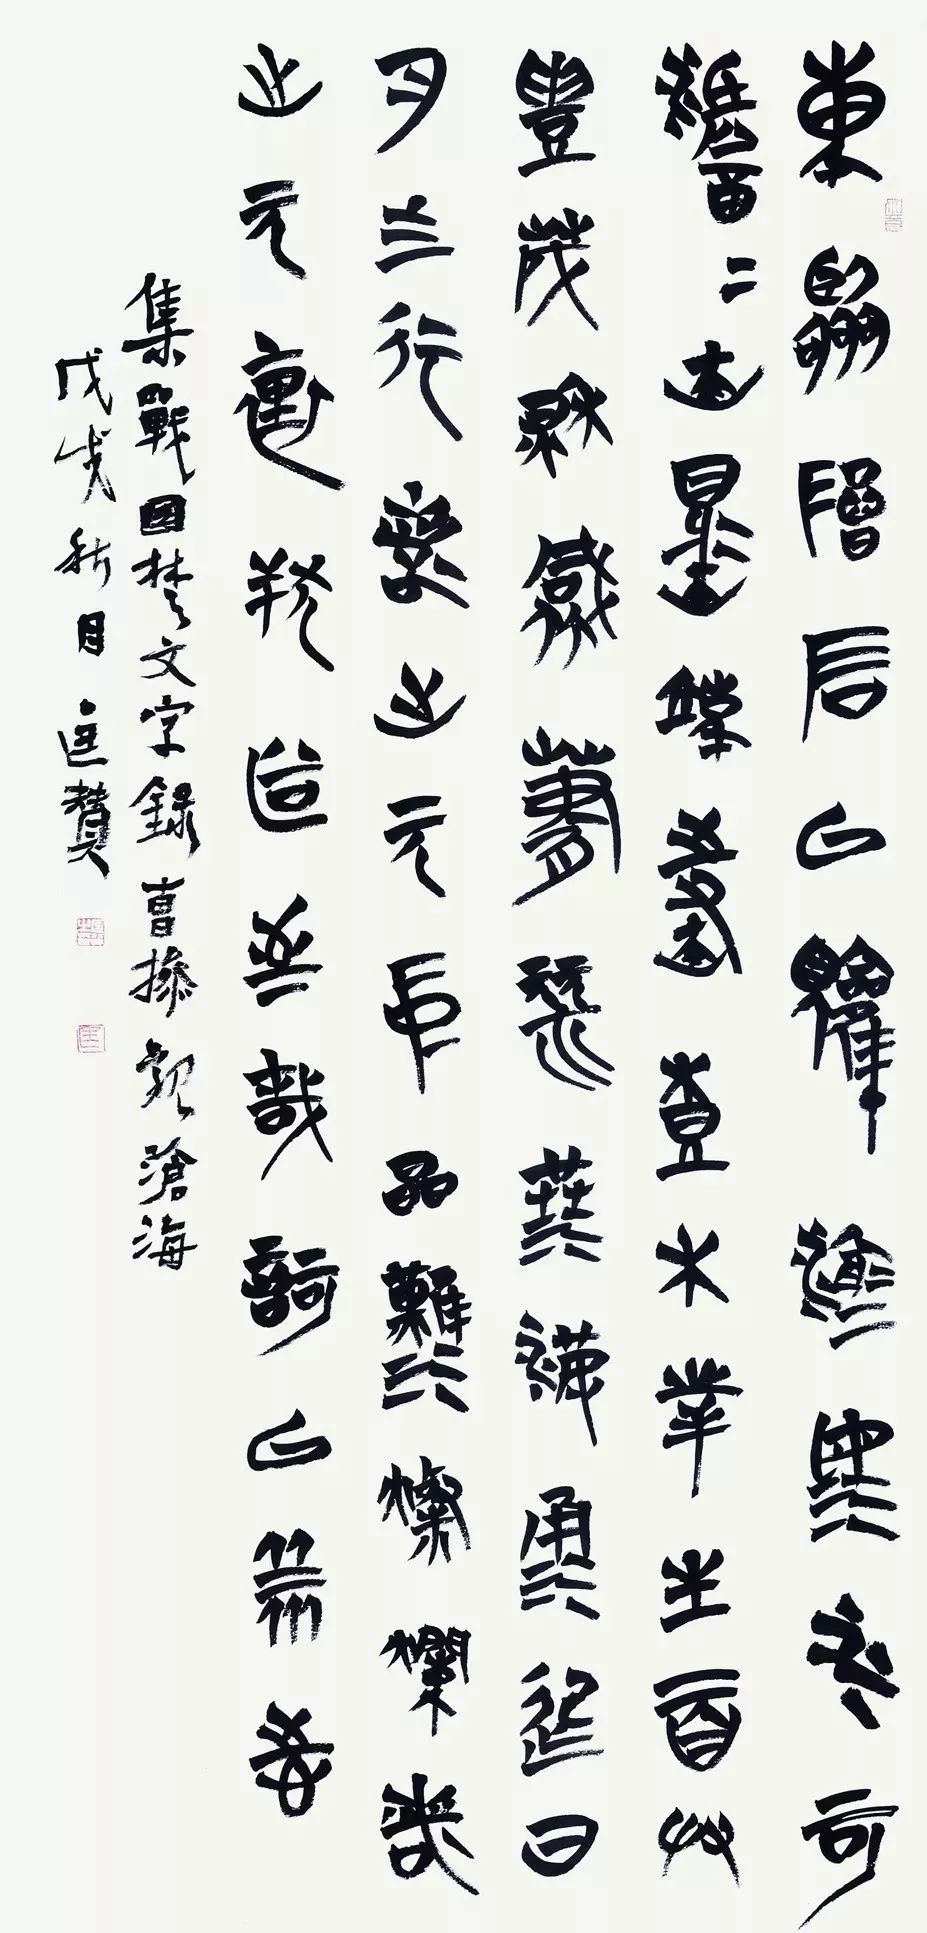 東臨碣石以觀滄海水何
澹二山島竦峙樹木叢生百艸
豐茂秋風蕭瑟洪波湧起日
月之行若出其中星漢燦爛若
出其裏幸甚至哉歌以詠志
集戰國楚文字錄曹操觀滄海
戊戌秋月匡贊